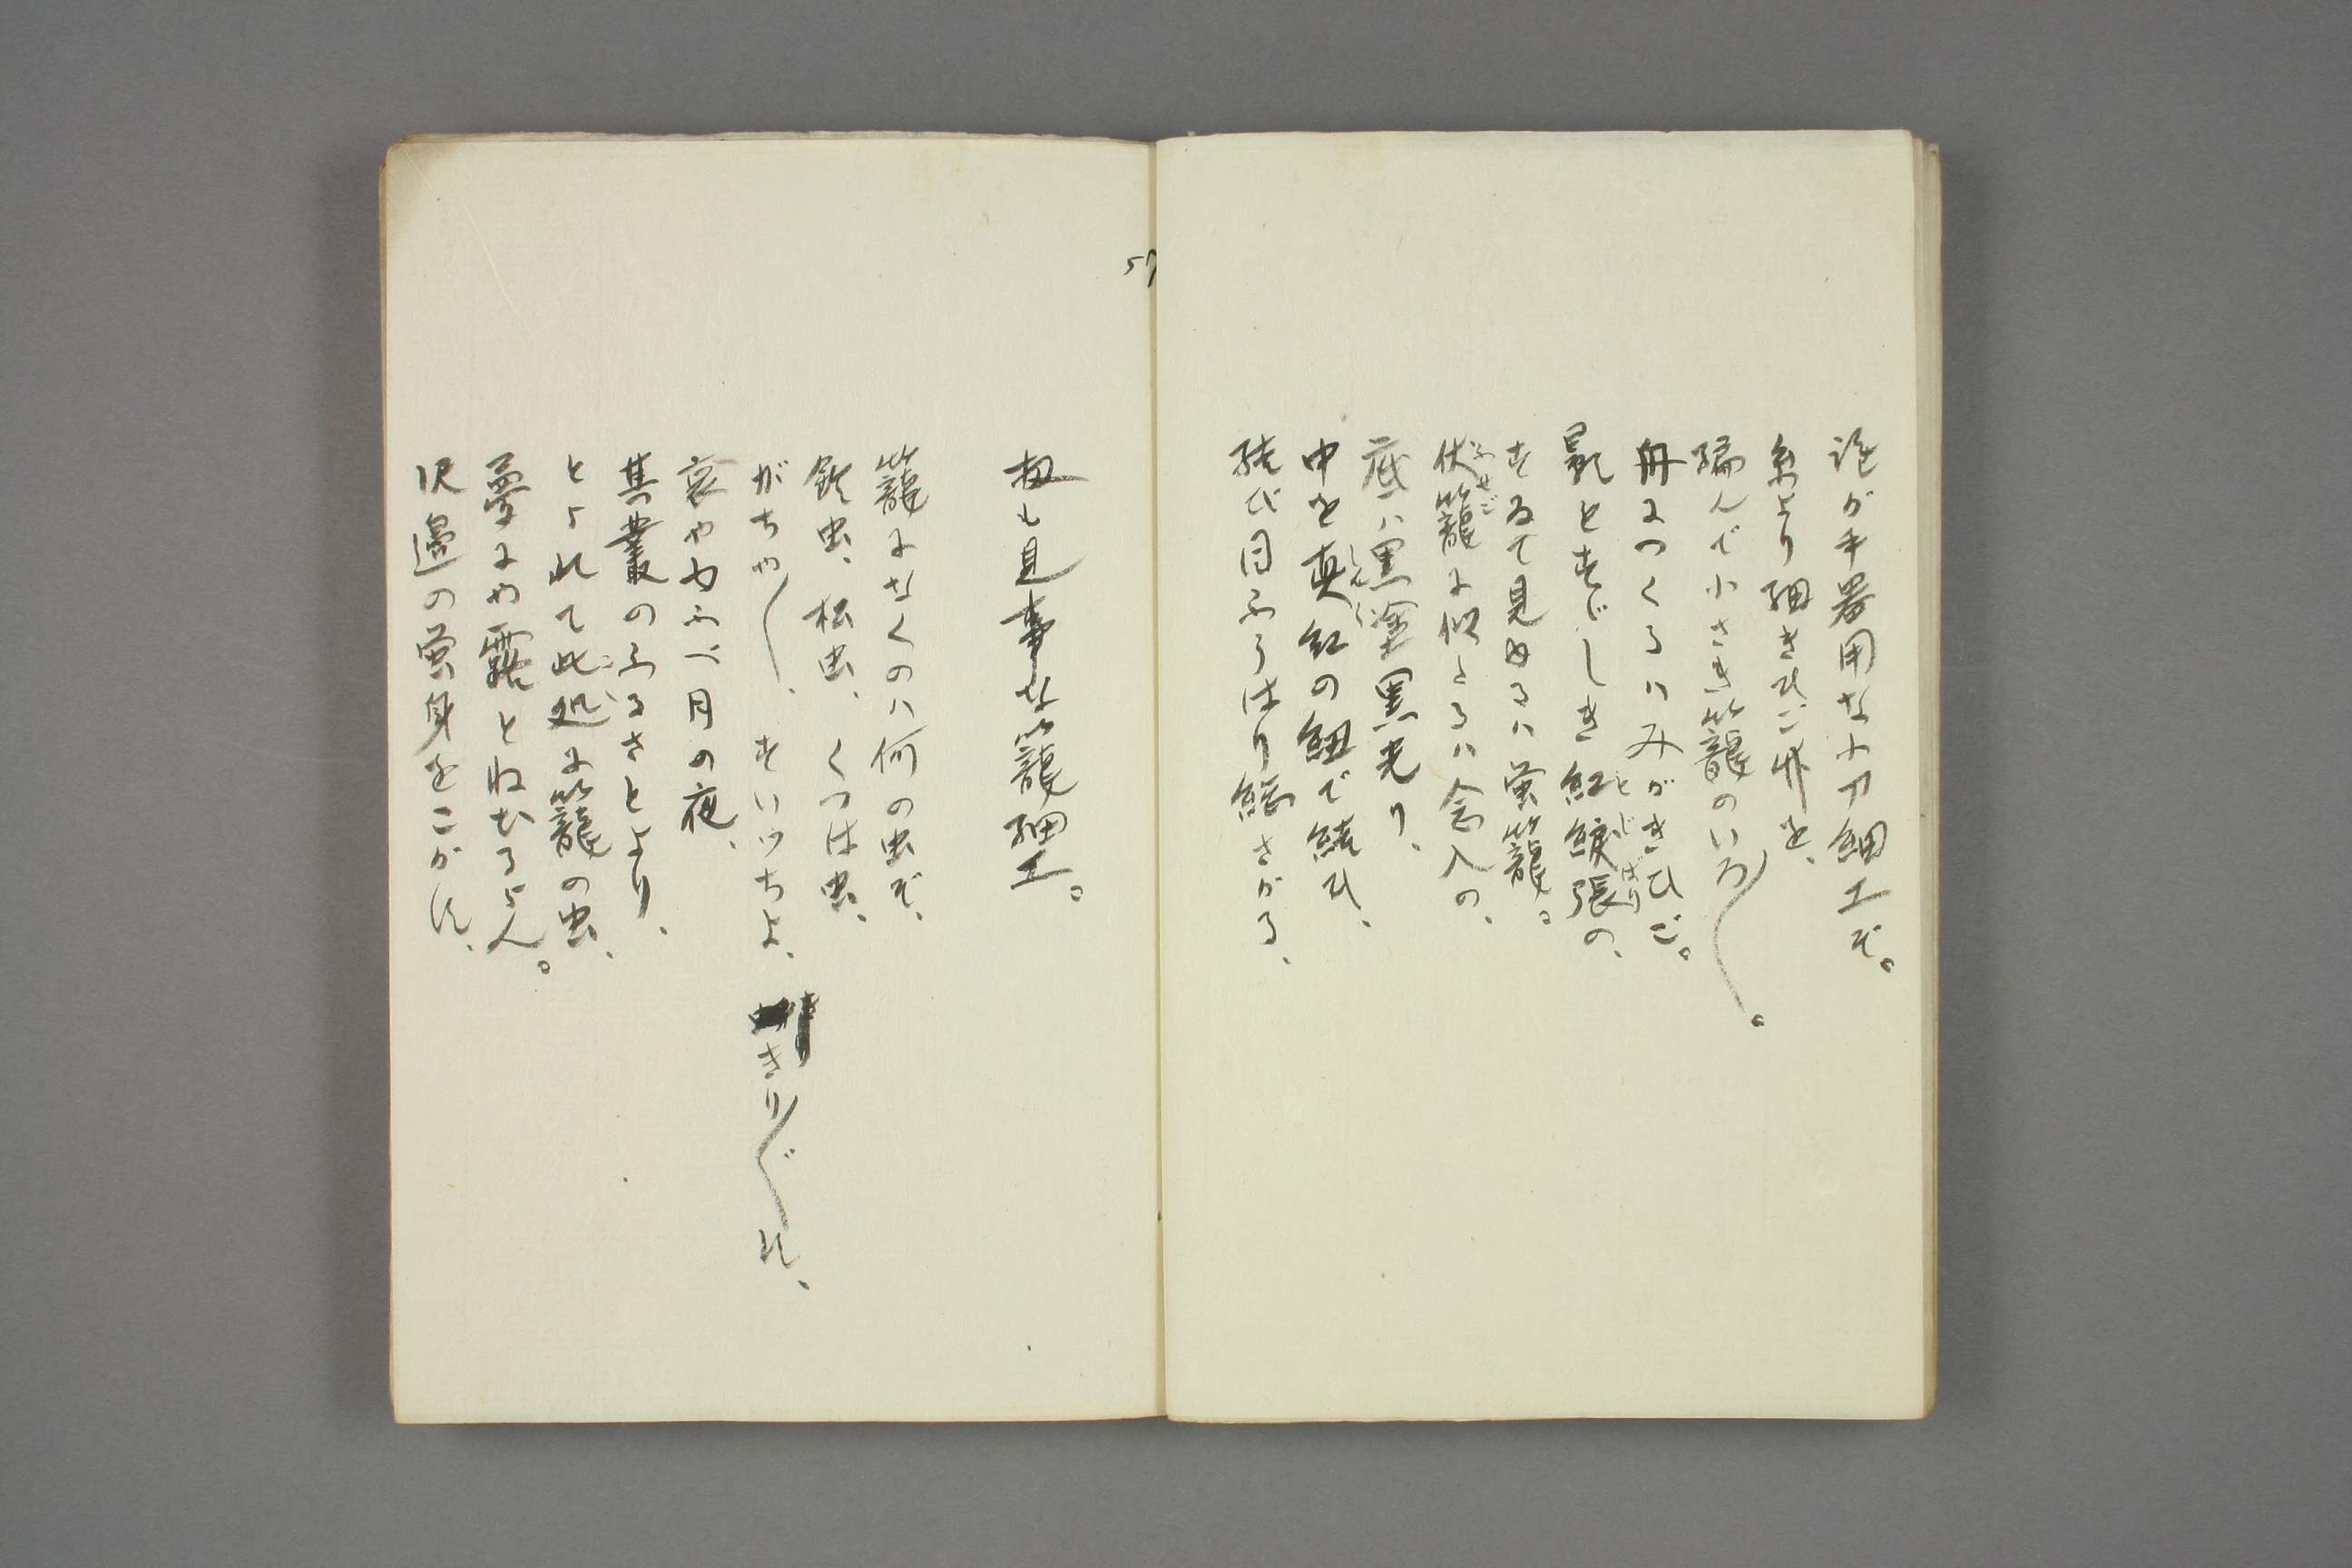 誰が手器用な小刀細工ぞ。
糸より細きひご竹を、
編んで小さき籠のいろ〳〵。
舟につくるハみがきひご。
影とすゞしき紅縮張の、
すゑて見ゆるハ蛍籠。
伏籠に似たるハ念入の、
底ハ黒塗黒光り、
中を真紅の紐で結ひ、
結び目ふうはり総さがる、
57
扨も見事な籠細工。
籠になくのハ何の虫ぞ、
鈴虫、松虫、くつは虫、
がちや〳〵、すいつちよ、きり〴〵す、
哀やゆふべ月の夜、
其叢のふるさとより、
とられて此処に籠の虫、
夢にや露とねむるらん。
沢邊の蛍身をこがす、